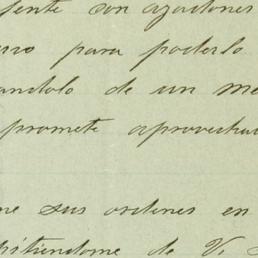 sente con azadones
para poderlo
andolo de un me
promete aprovecha
me sus ordenes en
pitiendome de V. S